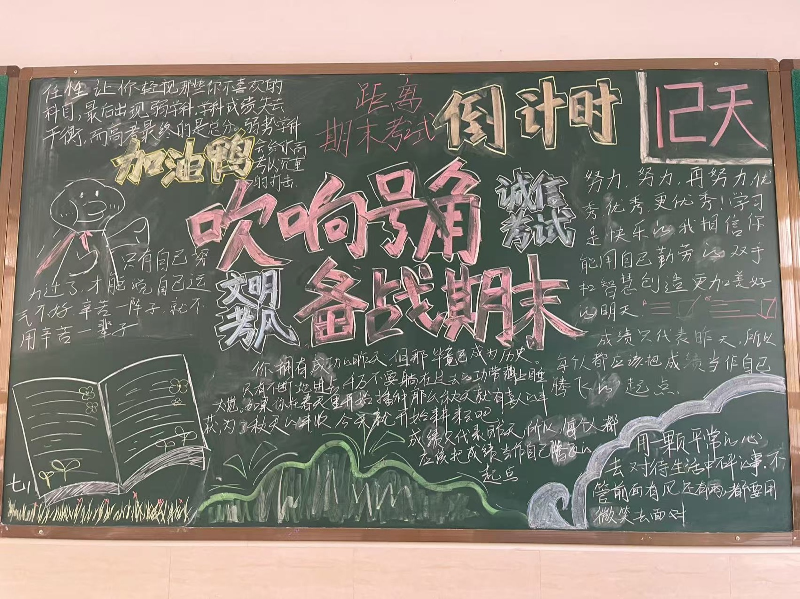 任性让你轻视那些你不喜欢的
科目,最后出现弱学科,学科成绩失去
平衡,而高考最终的是总分,弱势学科
会给你高
考以沉重
的打击.
加油鸭
距离
期末考试
倒计时
12天
吹响号角
备战期末
诚信
考试
文明
考风
只有自己努
力过了,才能说自己运
气不好辛苦一阵子,就不
用辛苦一辈子
努力,努力,再努力,优
秀优秀更优秀!学习
是快乐的我相信你
能用自己勤劳的双手
和智慧创造更加美好
的明天
成绩只代表昨天,所以
每个人都应该把成绩当作自己
腾飞的起点.
你拥有成功的昨天,但那毕竟已成为历史。
只有不断地进步,千万不要躺在过去的功劳簿上睡
大觉,如果你在春天里开始播种那么秋天就有喜人的丰
收,为了秋天的丰收今天就开始耕耘吧
成绩只代表昨天,所以每个人都
应该把成绩当作自己腾飞的
起点
用一颗平常的心,
去对待生活中不平的事,不
管前面有风还有雨,都要用
微笑去面对
七1